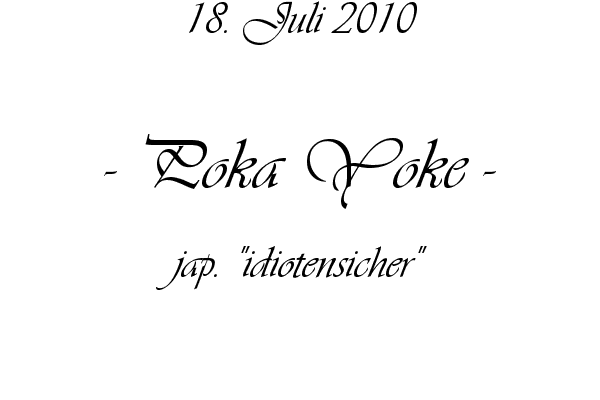 18. Juli 2010
- Poka Yoke -
jap. "idiotensicher"